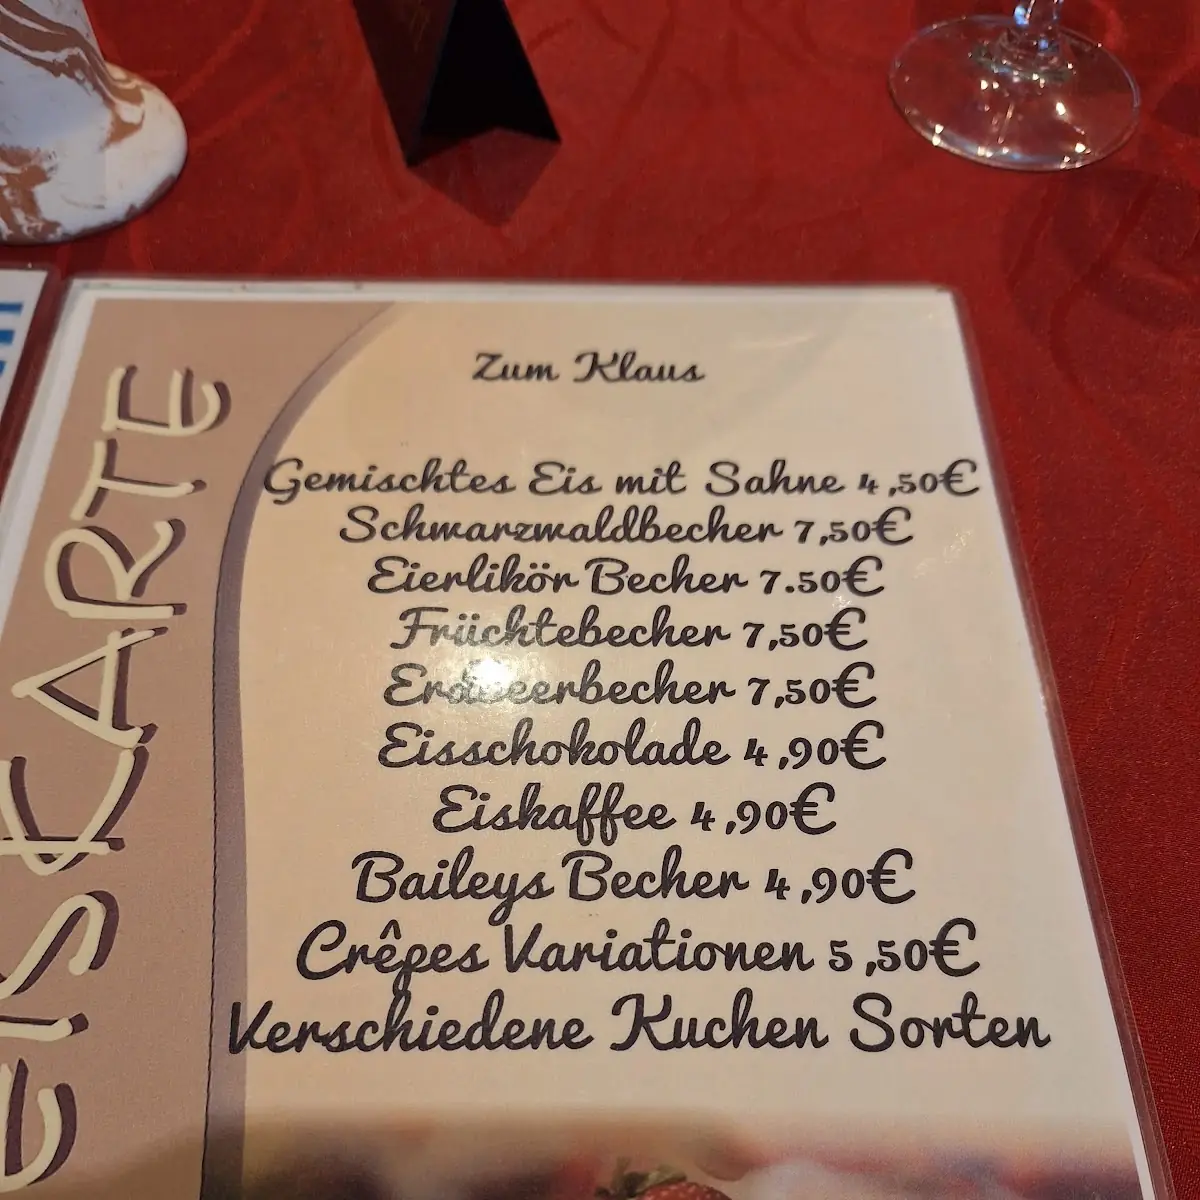 EISKARTE
Zum Klaus
Gemischtes Eis mit Sahne 4,50€
Schwarzwaldbecher 7,50€
Eierlikör Becher 7.50€
Früchtebecher 7,50€
Erdbeerbecher 7,50€
Eisschokolade 4,90€
Eiskaffee 4,90€
Baileys Becher 4,90€
Crêpes Variationen 5,50€
Verschiedene Kuchen Sorten